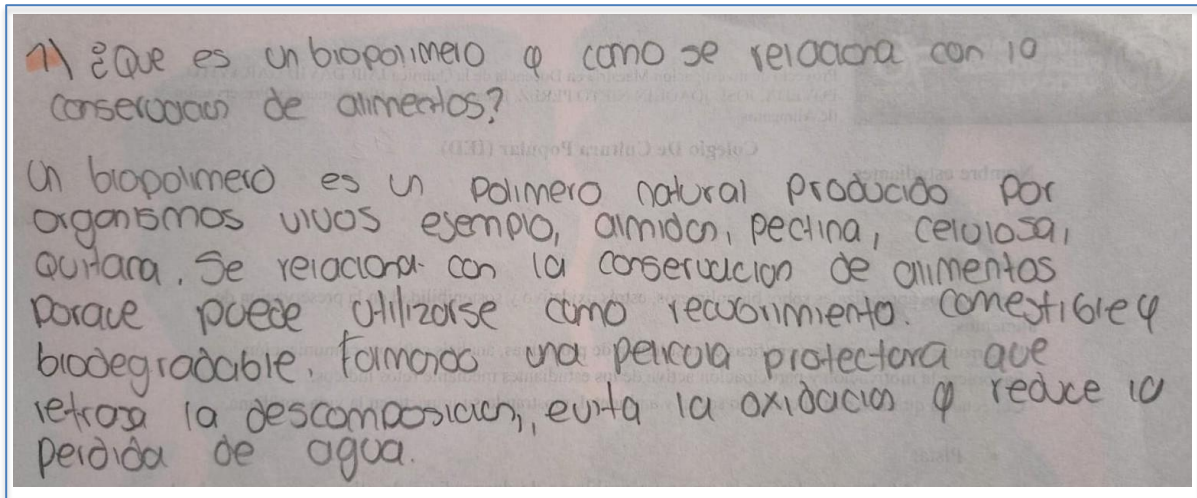 1) ¿Que es un biopolimero y como se relaciona con la
conservacion de alimentos?
Un biopolimero es un polimero natural producido por
organismos vivos esemplo, almidon, pectina, celulosa,
. Se relaciona con la conservacion de alimentos
porque puede utilizarse como recubrimiento. comestible y
biodegradable, formando una pelicula protectora que
retrasa la descomposicion, evita la oxidacion y reduce la
perdida de agua.
Colegio De Cultura Popular (IED)